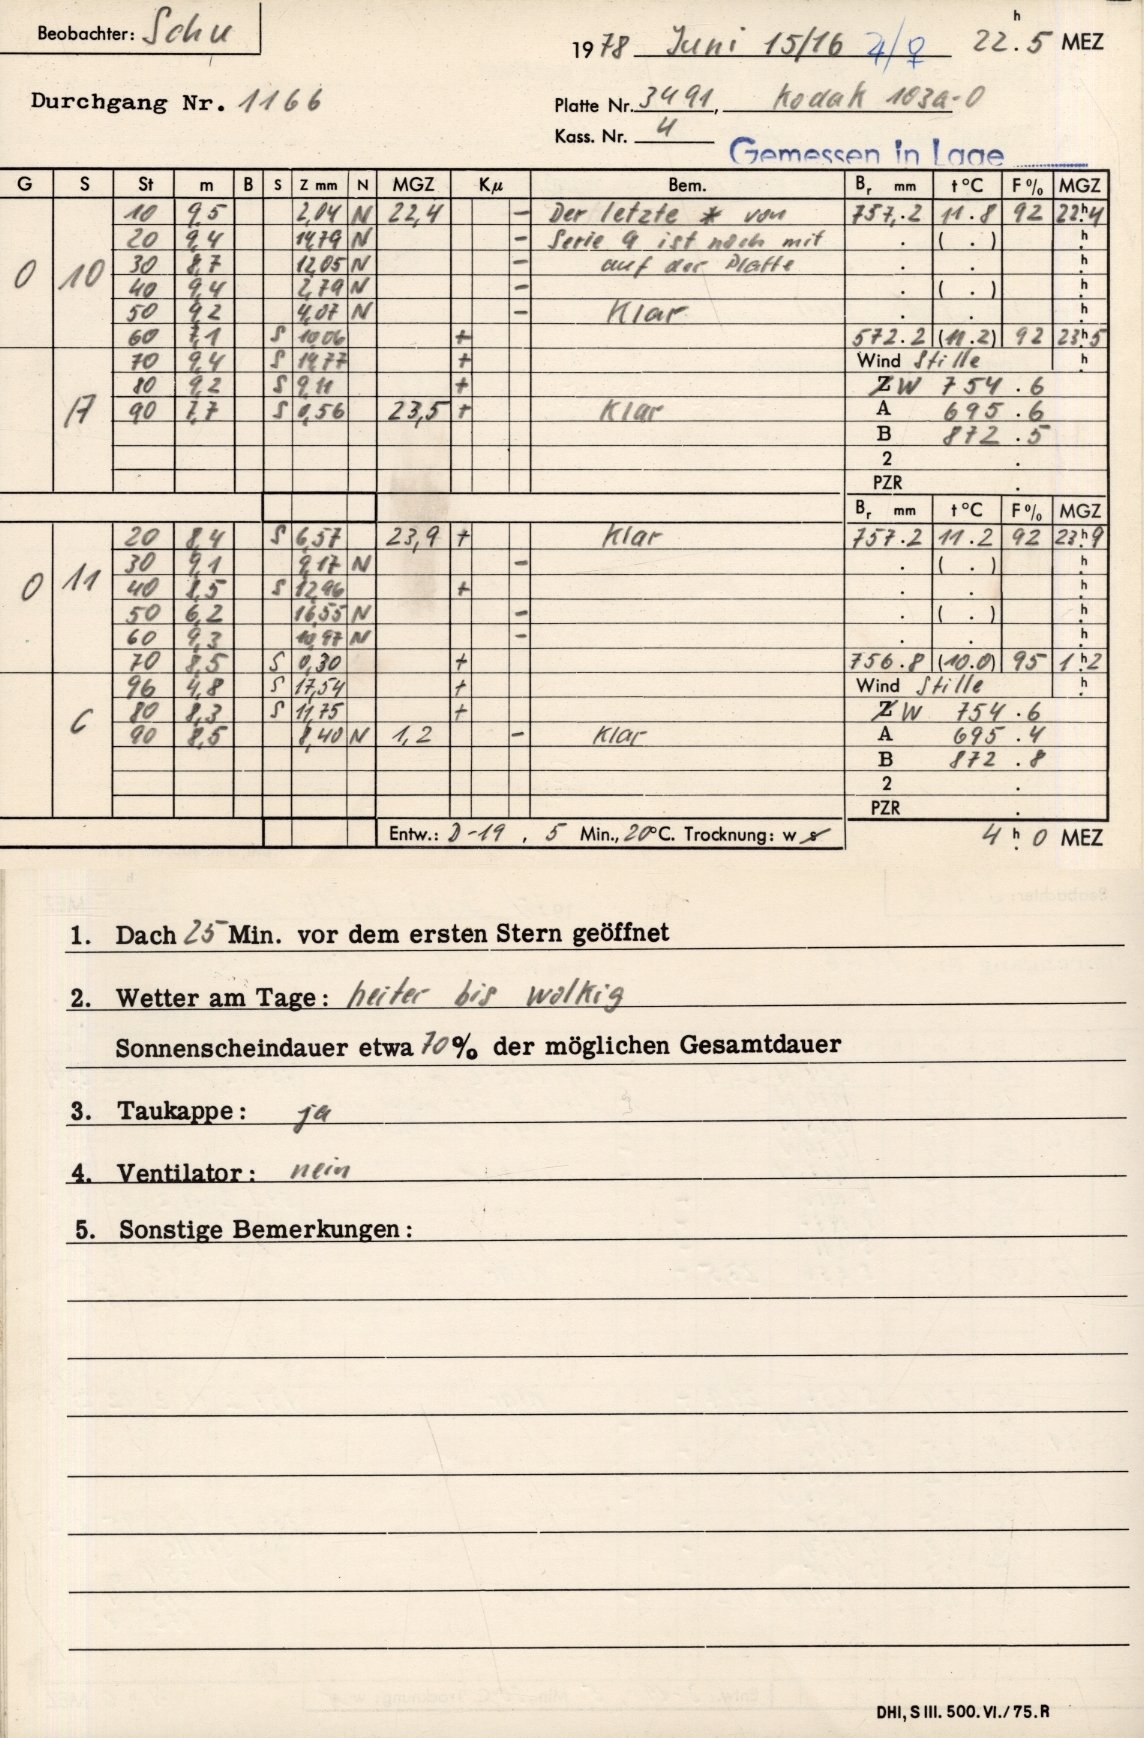 Beobachter: Schu
h
1978 Juni 15/16 ♃/♀ 22.5 MEZ
Durchgang Nr. 1166
Platte Nr. 3491, Kodak 103a-O
Kass. Nr. 4
Gemessen in Lage
G S St m B S Z mm N MGZ Kμ Bem. Br mm t°C F% MGZ
10 9,5 2,04 N 22,4 - Der letzte * von 757,.2 11.8 92 22h4
20 9,4 14,79 N - Serie 9 ist noch mit . ( . ) h
0 10 30 8,7 12,05 N - auf der Platte . . h
40 9,4 2,79 N - . ( . ) h
50 9,2 4,07 N - Klar . . h
60 7,1 S 10,06 + 572.2 (11.2) 92 23h5
70 9,4 S 14,77 + Wind Stille h
80 9,2 S 9,11 + ZW 754.6
A 90 7,7 S 0,56 23,5 + Klar A 695.6
B 872.5
2 .
PZR .
Br mm t°C F% MGZ
20 8,4 S 6,57 23,9 + Klar 757.2 11.2 92 23h9
0 11 30 9,1 9,17 N - . ( . ) h
40 8,5 S 12,96 + . . h
50 6,2 16,55 N - . ( . ) h
60 9,3 10,97 N - . . h
70 8,5 S 0,30 + 756.8 (10.0) 95 1h2
96 4,8 S 17,54 + Wind Stille h
C 80 8,3 S 11,75 + ZW 754.6
90 8,5 8,40 N 1,2 - Klar A 695.4
B 872.8
2 .
PZR .
Entw.: D-19, 5 Min., 20°C. Trocknung: w s 4h0 MEZ
1. Dach 25 Min. vor dem ersten Stern geöffnet
2. Wetter am Tage: heiter bis wolkig
Sonnenscheindauer etwa 70% der möglichen Gesamtdauer
3. Taukappe: ja
4. Ventilator: nein
5. Sonstige Bemerkungen:
DHI, S III. 500. VI./75. R